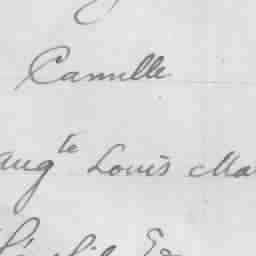 Camille
augte Louis Ma